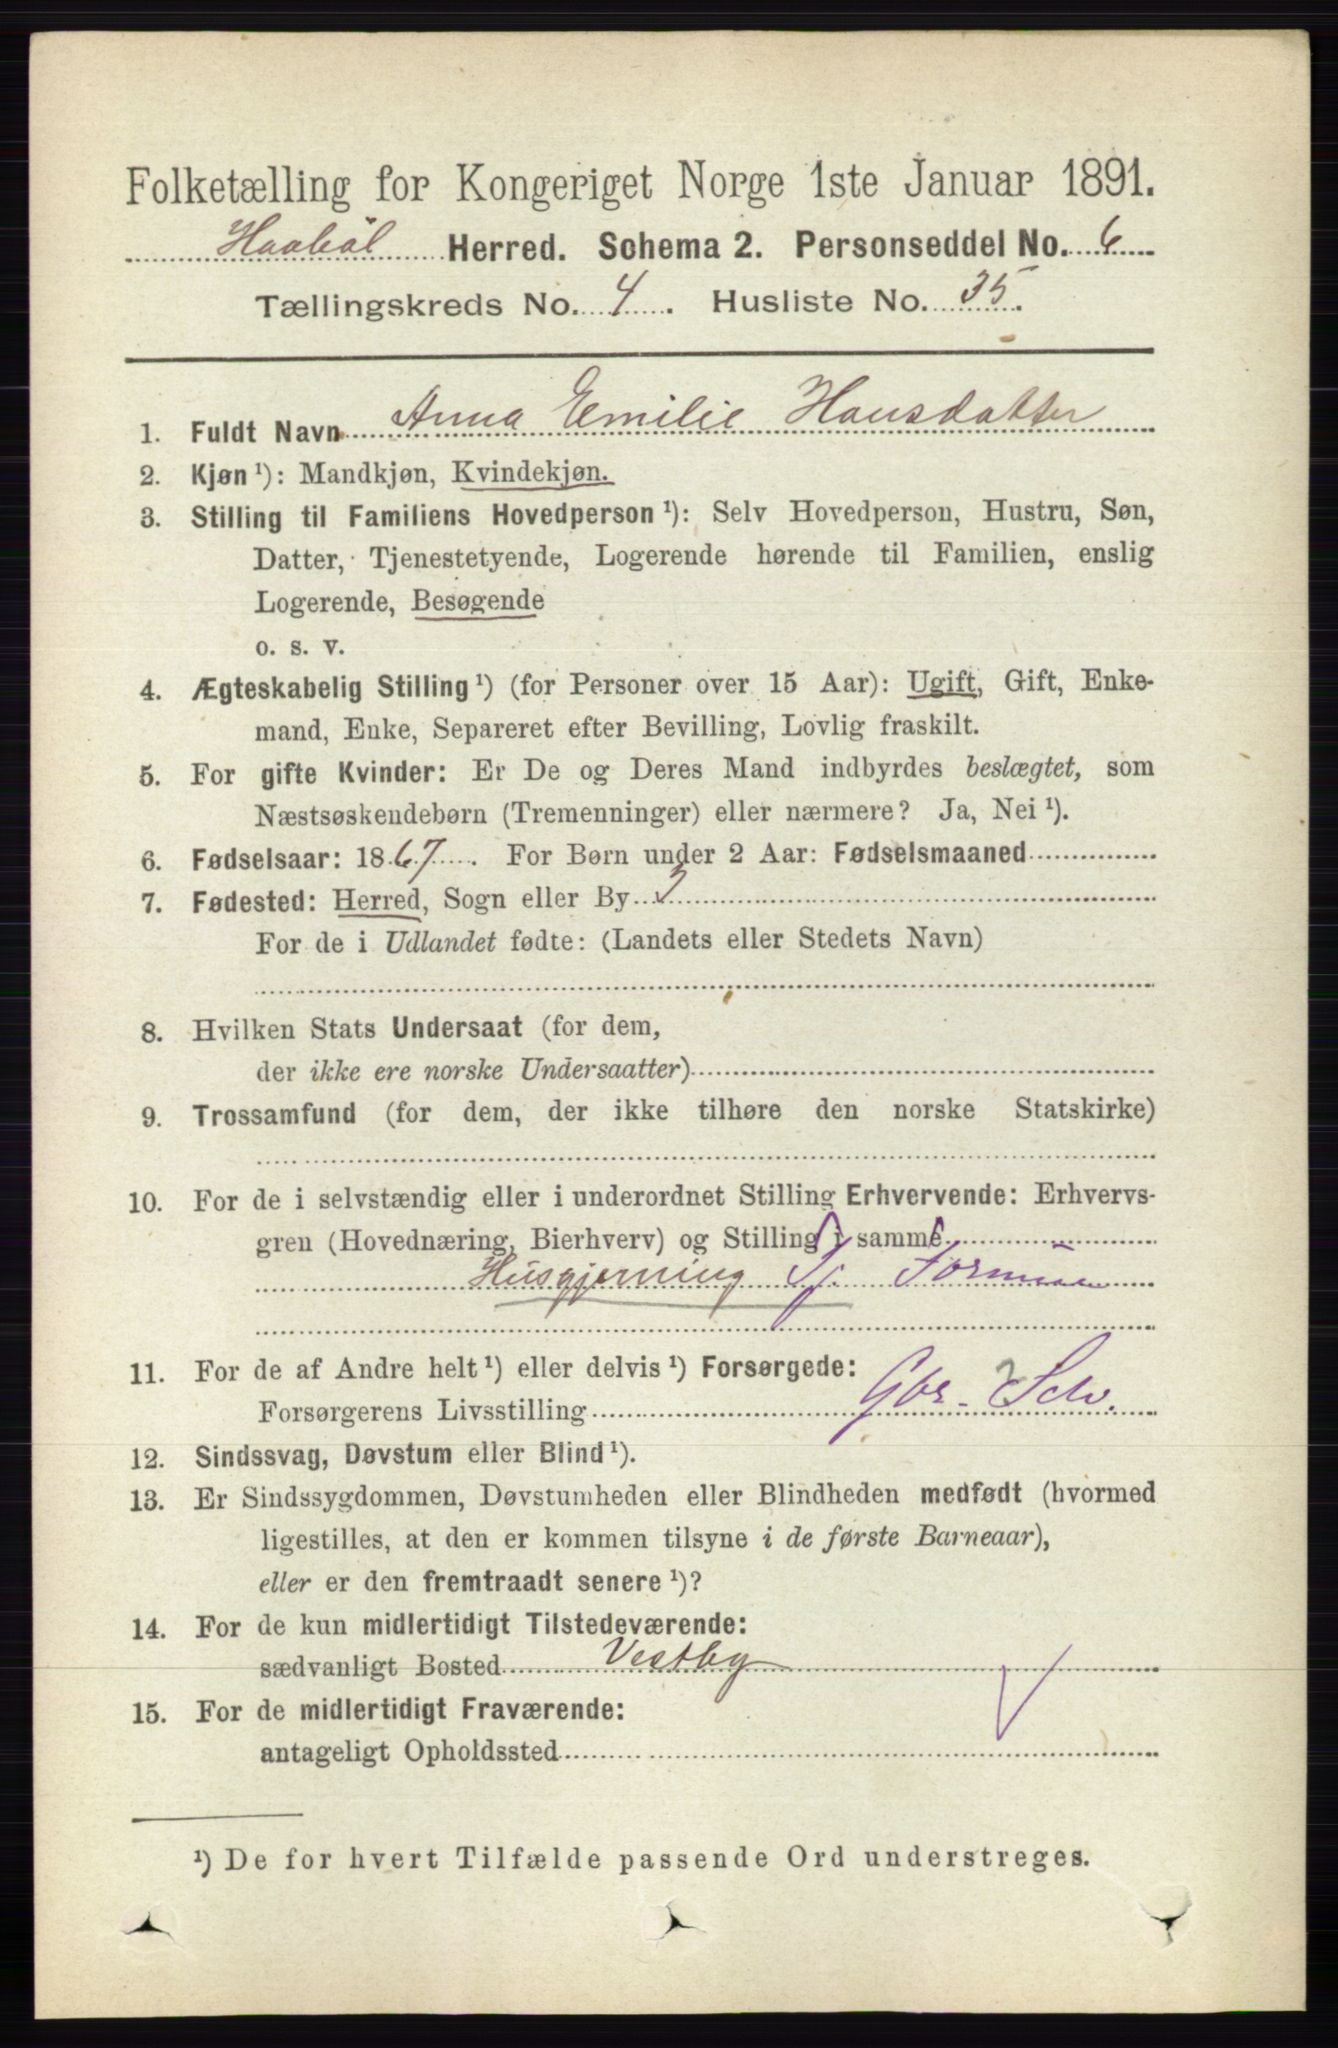 Folketælling for Kongeriget Norge 1ste Januar 1891.
Haabøl Herred. Schema 2. Personseddel No. 6
Tællingskreds No. 4. Husliste No. 35.
1. Fuldt Navn Anna Emilie Hansdatter
2. Kjøn ¹): Mandkjøn, Kvindekjøn.
3. Stilling til Familiens Hovedperson ¹): Selv Hovedperson, Hustru, Søn,
Datter, Tjenestetyende, Logerende hørende til Familien, enslig
Logerende, Besøgende
o. s. v.
4. Ægteskabelig Stilling ¹) (for Personer over 15 Aar): Ugift, Gift, Enke-
mand, Enke, Separeret efter Bevilling, Lovlig fraskilt.
5. For gifte Kvinder: Er De og Deres Mand indbyrdes beslægtet, som
Næstsøskendebørn (Tremenninger) eller nærmere? Ja, Nei ¹).
6. Fødselsaar: 1867. For Børn under 2 Aar: Fødselsmaaned
7. Fødested: Herred, Sogn eller By 3
For de i Udlandet fødte: (Landets eller Stedets Navn)
8. Hvilken Stats Undersaat (for dem,
der ikke ere norske Undersaatter)
9. Trossamfund (for dem, der ikke tilhøre den norske Statskirke)
10. For de i selvstændig eller i underordnet Stilling Erhvervende: Erhvervs-
gren (Hovednæring, Bierhverv) og Stilling i samme
Husgjerning Tj.
11. For de af Andre helt ¹) eller delvis ¹) Forsørgede:
Forsørgerens Livsstilling Gbr. Selv.
12. Sindssvag, Døvstum eller Blind ¹).
13. Er Sindssygdommen, Døvstumheden eller Blindheden medfødt (hvormed
ligestilles, at den er kommen tilsyne i de første Barneaar),
eller er den fremtraadt senere ¹)?
14. For de kun midlertidigt Tilstedeværende:
sædvanligt Bosted Vestby
15. For de midlertidigt Fraværende:
antageligt Opholdssted
¹) De for hvert Tilfælde passende Ord understreges.